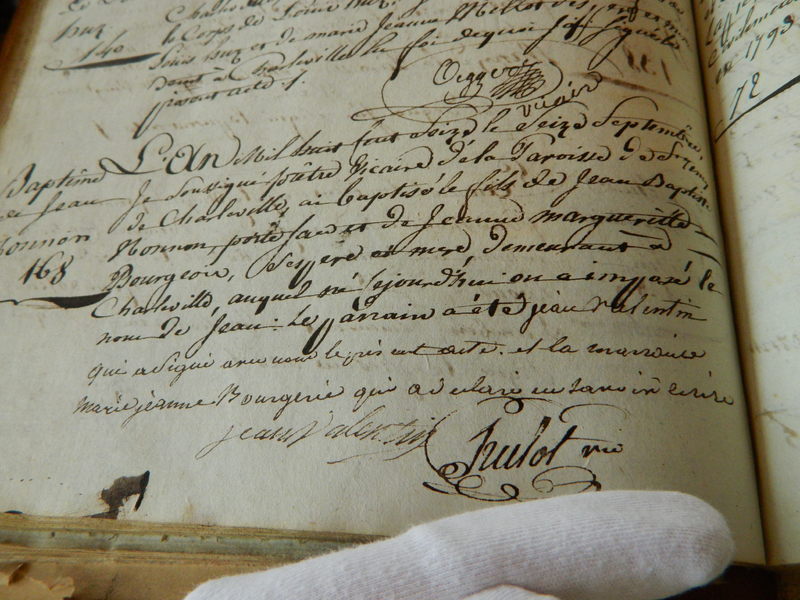 Charleville
le Corps de
Louis huz et de marie jeanne Millot ses pere et mere
Demt a Charleville En foi de quoi j'ai signé le
présent acte ./.
huz
140
Oegger
vicaire
Baptême
de Jean
Nonnon
168
L'An Mil huit Cent Seize le Seize Septembre
Je Soussigné prêtre Vicaire de la Paroisse de
de Charleville, ai baptisé le fils de Jean Baptiste
Nonnon, porte faix et de Jeanne Marguerite
Bourgeois, Ses pere et mere demeurant a
Charleville, auquel né cejourd'hui on a imposé le
nom de Jean. Le parrain a été jean Valentin
qui a signé avec nous le présent acte. et la marraine
marie jeanne Bourgerie qui a déclaré ne savoir écrire
jean Valentin
hulot vic
1793
72